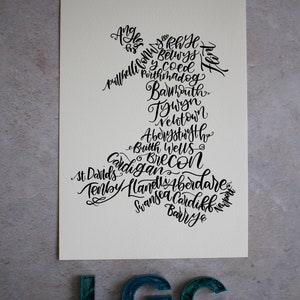 Anglesey
Rhyl
Pwllheli Conwy Flint
Betws
y Coed
Porthmadog
Barmouth
Tywyn
Newtown
Aberystwyth
Builth Wells
Brecon
Cardigan
St Davids
Tenby Llanelli Aberdare
Swansea Cardiff Newport
Barry
LGC